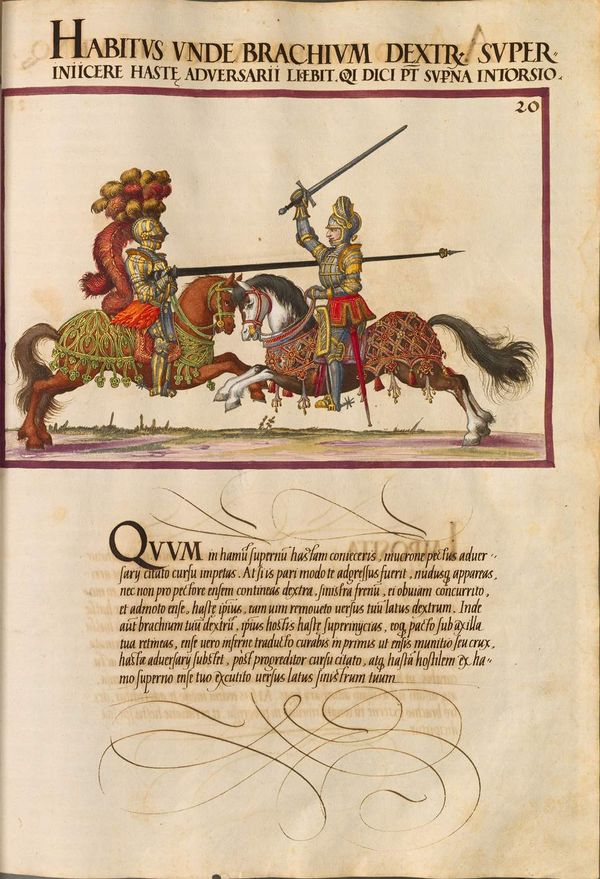 HABITVS VNDE BRACHIVM DEXTRṼ SVPER-
INIICERE HASTĘ ADVERSARII LICEBIT. QI DICI PT̄ SVPNA INTORSIO.
20
QVVM in hamū supernū hastam conieceris, mucrone pectus aduer-
sarij citato cursu impetas. At si is pari modo te adgressus fuerit, nudusq appareas,
nec non pro pectore ensem contineas dextra, sinistra frenū, ei obuiam concurrito,
et admoto ense, hastę ipsius, tam uim remoueto uersus tuū latus dextrum. Inde
aūt brachium tuū dextrū, ipsius hostis hastę superinijcias, eoq pacto sub axilla
tua retineas, ense uero inferne traducto curabis in primis ut ensis munitio seu crux,
hastā aduersarij substet, post progreditor cursu citato, atq hastā hostilem ex ha-
mo superno ense tuo excutito uersus latus sinistrum tuum.